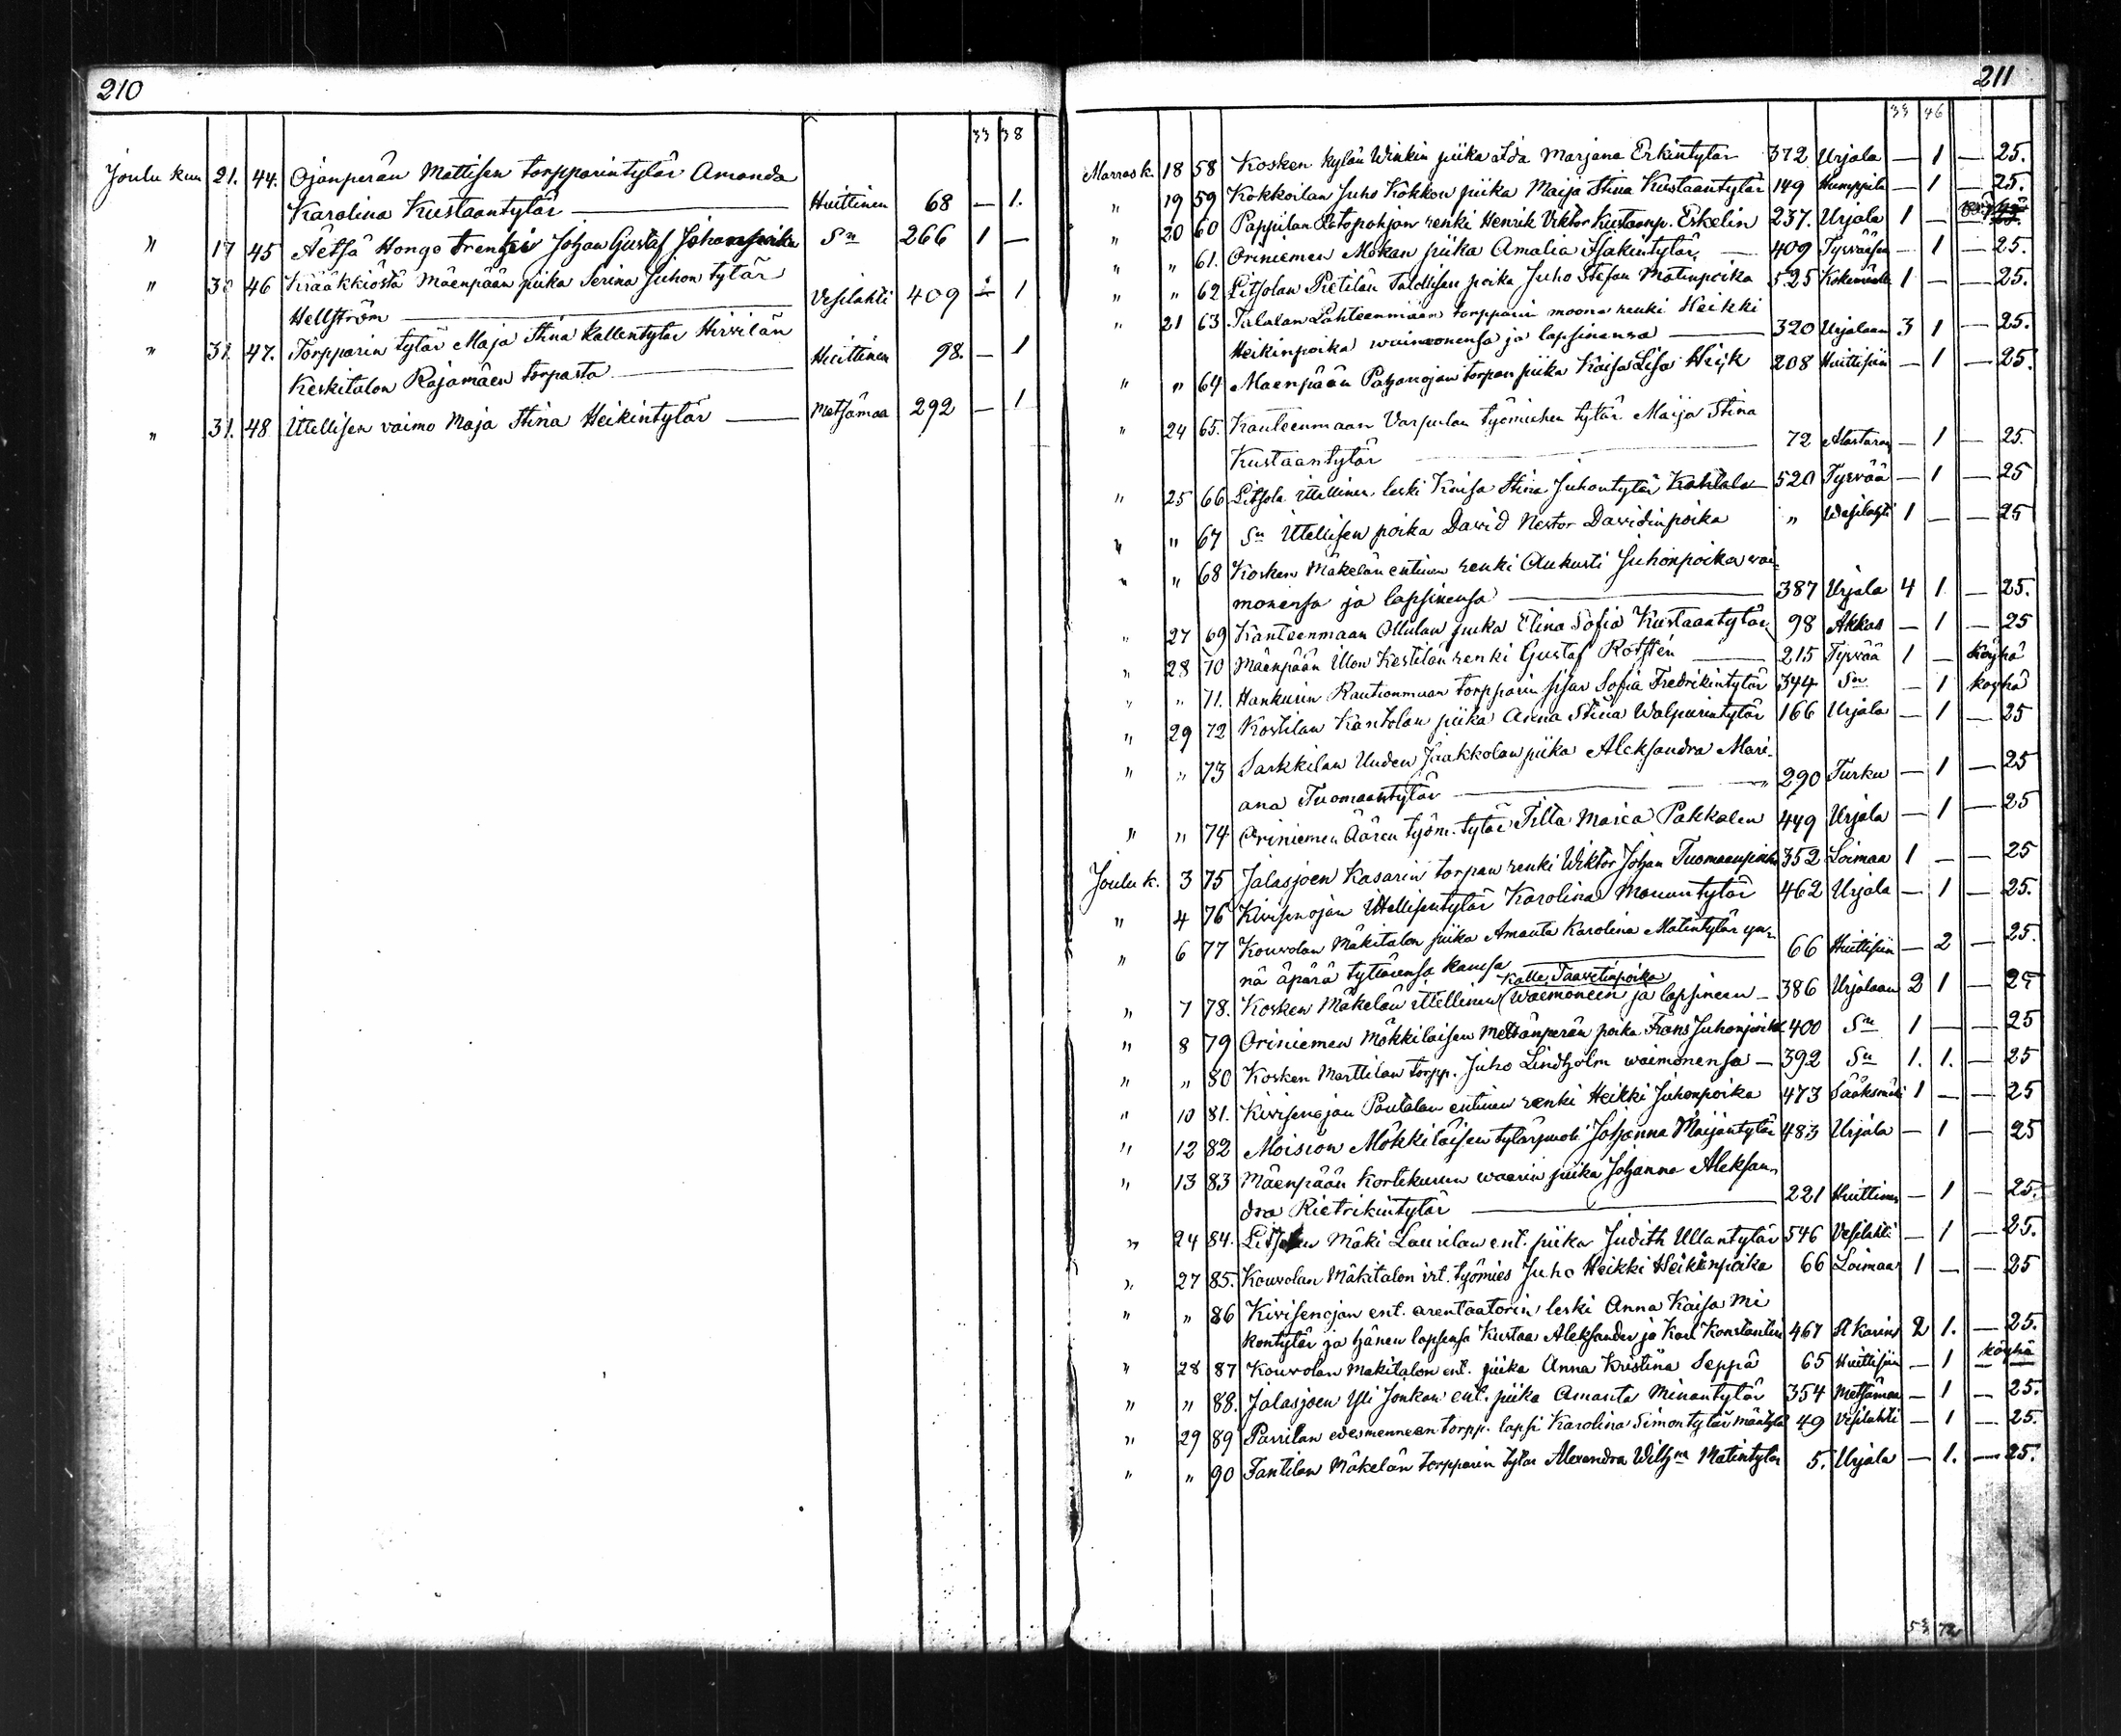 210
33 38
Joulu kuu 21. 44. Ojanperän Mattisen torpparintytär Amanda
Karolina Kustaantytär — Huittinen 68 — 1.
" 17 45 Äetsä Hongo trenki Johan Gustaf Johanpoika Sn 266 1 —
" 30 46 Krääkkiöstä Mäenpään piika Serina Juhon tytär
Hellström — Vesilahti 409 — 1
" 31. 47. Torpparin tytär Maja Stina Kallentytär Hirvilän
Keskitalon Rajamäen torpasta — Huittinen 98. — 1
" 31. 48 Itellisen vaimo Maja Stina Heikintytär — Metsämaa 292 — 1
211
33 46
Marras k. 18 58 Kosken kylän Winkin piika Ida Marjana Erkintytär 372 Urjala — 1 — 25.
" 19 59 Kokkoilan Juho Kokkon piika Maija Stina Kustaantytär 149 Humppila — 1 — 25.
" 20 60 Pappilan Latopohjan renki Henrik Viktor Kustaanp. Erkelin 237. Urjala 1 —
" " 61. Oriniemen Mokan piika Amalia Isakintytär — 409 Tyrvääsen — 1 — 25.
" " 62 Litsolan Pietilän Itellisen poika Juho Stefan Matinpoika 525 Kokemäelle 1 — — 25.
" 21 63 Talalan Lähteenmään torpparin moona renki Heikki
Heikinpoika waimonensa ja lapsinensa — 320 Urjalaan 3 1 — 25.
" " 64 Mäenpään Pahanojan torpan piika Kaisa Lisa Hiik 208 Huittisiin — 1 — 25
" 24 65. Kanteenmaan Varpulan työmiehen tytär Maija Stina
Kustaantytär — 72 Alastaron — 1 — 25.
" 25 66 Litsola itellinen leski Kaisa Stina Juhontytär Kahlala 520 Tyrvää — 1 — 25
" " 67 Sn Itellisen poika David Nestor Davidinpoika " Wesilahti 1 — — 25
" " 68 Kosken Mäkelän entinen renki Aukusti Juhonpoika wai-
monensa ja lapsinensa — 387 Urjala 4 1 — 25.
" 27 69 Kanteenmaan Ollulan piika Elina Sofia Kustaantytär 98 Akkas — 1 — 25
" 28 70 Mäenpään Ulon Kestilän renki Gustaf Rotstén — 215 Tyrvää 1 — köyhä
" " 71. Hankurin Rautionmaan torpparin sisar Sofia Fredrikintytär 344 Sn — 1 köyhä
" 29 72 Kostilan Kantolan piika Anna Stiina Walpurintytär 166 Urjala — 1 — 25
" " 73 Sarkkilan Uuden Jaakkolan piika Aleksandra Mari-
ana Tuomaantytär — 290 Turku — 1 — 25
" " 74 Oriniemen Äären työm. tytär Tilta Maria Pakkalen 449 Urjala — 1 — 25
Joulu k. 3 75 Jalasjoen Kasarin torpan renki Wiktor Johan Tuomaanpoika 352 Loimaa 1 — — 25
" 4 76 Kivisenojan Itellisentytär Karolina Manuntytär 462 Urjala — 1 — 25.
" 6 77 Kouvolan Mäkitalon piika Amanta Karolina Matintytär yn-
nä äpärä tyttärensä kanssa — 66 Huittisiin — 2 — 25.
Kalle Taavetinpoika
" 7 78. Kosken Mäkelän itellinen (waimoneen ja lapsineen — 386 Urjalaan 2 1 — 25
" 8 79 Oriniemen Mökkiläisen Metsänperän poika Frans Juhonpoika 400 Sn 1 — — 25
" " 80 Kosken Marttilan torpp. Juho Lindholm waimonensa — 392 Sn 1. 1. — 25
" 10 81. Kivisenojan Pontolan entinen renki Heikki Juhonpoika 473 Sääksmäki 1 — — 25
" 12 82 Moision Mökkiläisen tytärpuoli Johanna Maijantytär 483 Urjala — 1 — 25
" 13 83 Mäenpään Kortekunnun waarin piika Johanna Aleksan-
dra Rietrikintytär — 221 Huittinen — 1 — 25.
" 24 84. Litsolan Mäki Laurilan ent. piika Judith Ullantytär 546 Vesilahti — 1 — 25.
" 27 85. Kouvolan Mäkitalon irt. työmies Juho Heikki Heikinpoika 66 Loimaa 1 — — 25
" " 86 Kivisenojan ent. arentaatorin leski Anna Kaisa Mi
kontytär ja hänen lapsensa Kustaa Aleksander ja Karl Konstantin 467 St Karins 2 1. — 25.
" 28 87 Kouvolan Mäkitalon ent. piika Anna Kristiina Seppä 65 Huittisiin — 1 köyhä
" " 88. Jalasjoen Yli Jonkan ent. piika Amanta Minantytär 354 Metsämaa — 1 — 25.
" 29 89 Parrilan edesmenneen torpp. lapsi Karolina Simontytär Mäntylä 49 Vesilahti — 1 — 25.
" " 90 Fantilan Mäkelän torpparin tytär Alexandra Wilhna Matintytär 5. Urjala — 1. — 25.
53 72